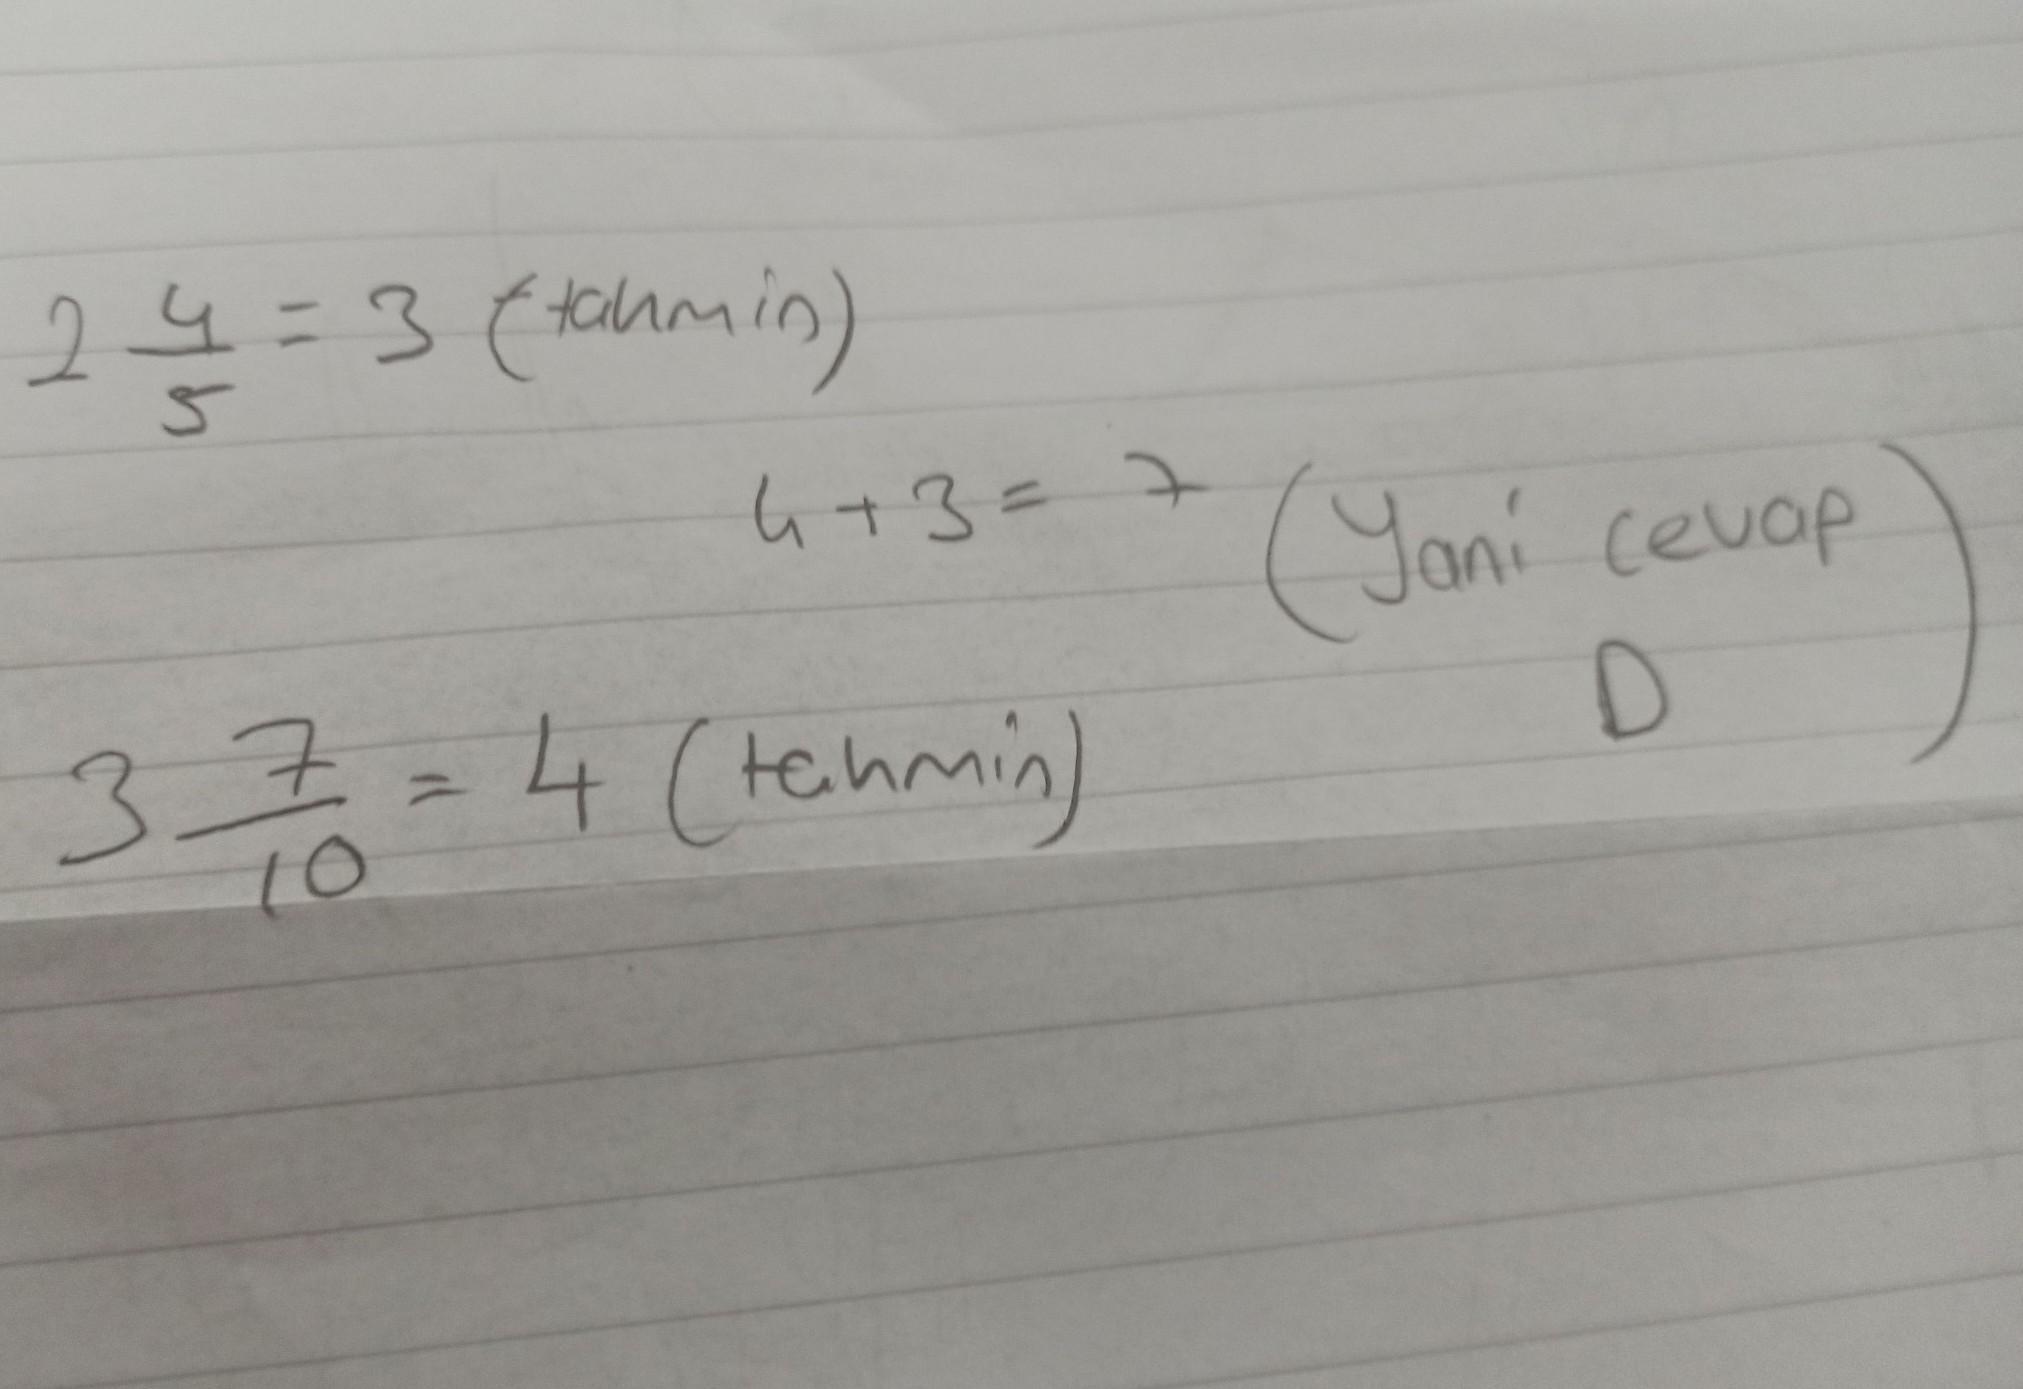 2 4/5 = 3 (tahmin)
4+3=7 (Yani cevap
D)
3 7/10 = 4 (tahmin)